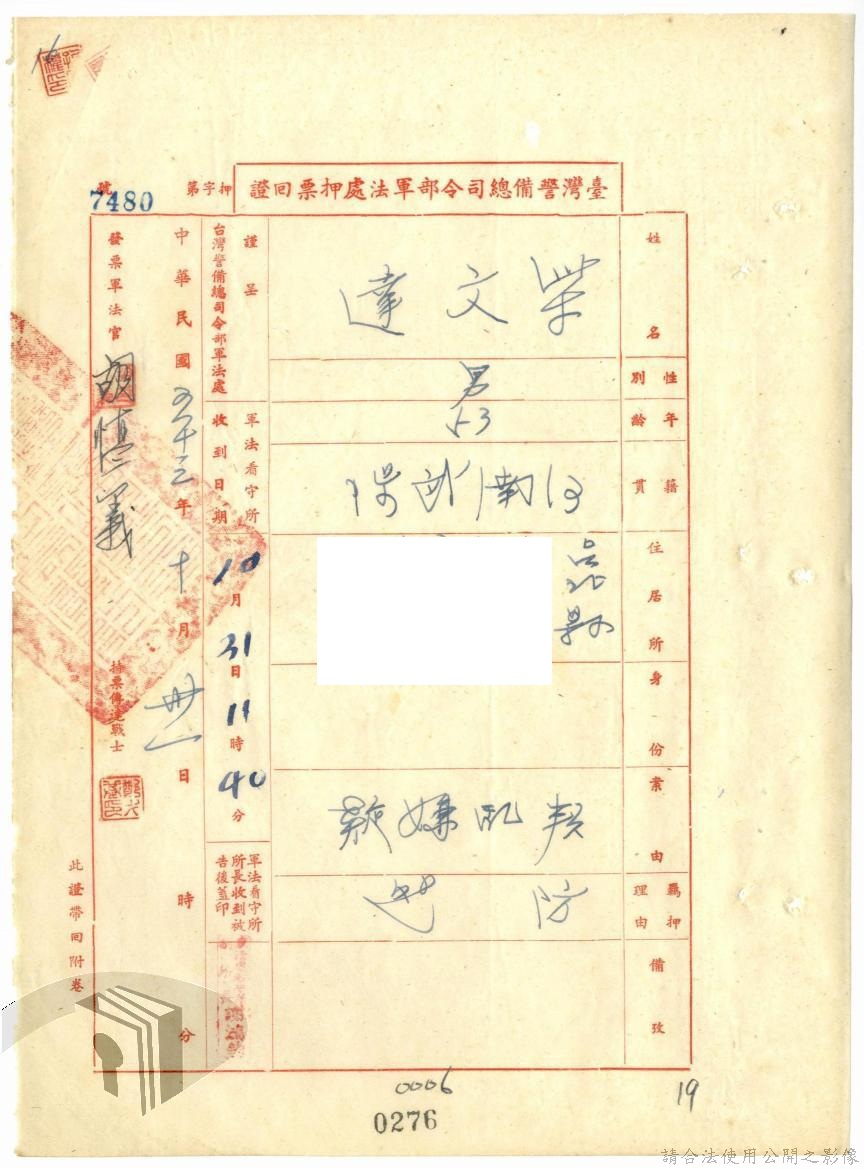 臺灣警備總司令部軍法處押票回證
押字第7480號
姓名 柴文達
性別 男
年齡 53
籍貫 河南武陟
住居所 台北縣
身份
案由 叛乱嫌疑
羈押理由 防逃
備攷
謹呈
台灣警備總司令部軍法處
軍法看守所收到日期 10月31日11時40分
軍法看守所所長收到被告後蓋印
中華民國五十三年十月卅一日 時 分
發票軍法官 胡慎義
持票傳達戰士
此證帶回附卷
0006
0276
19
請合法使用公開之影像